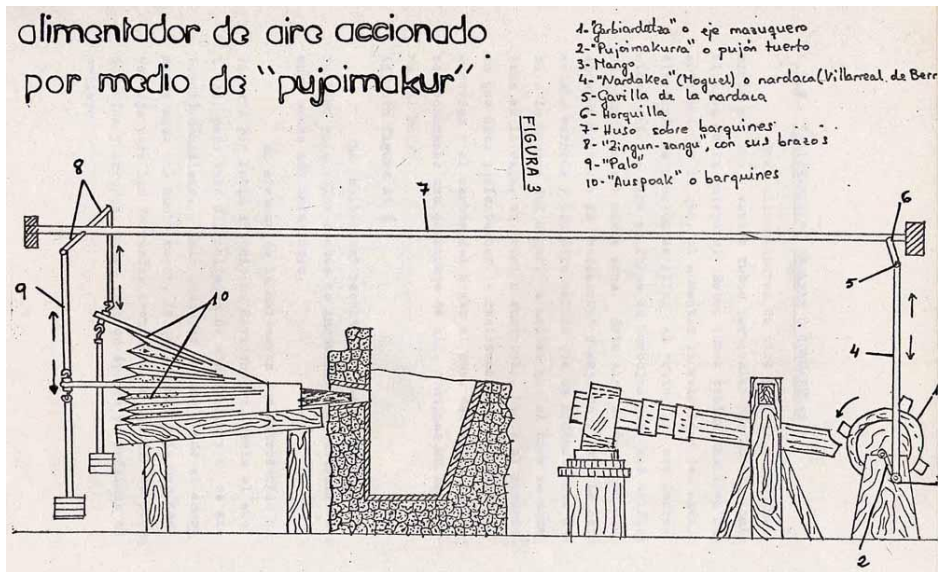 alimentador de aire accionado
por medio de "pujoimakur"
1-"Garbiardatza" o eje mazuquero
2-"Pujoimakurra" o pujón tuerto
3-Mango
4-"Nardakea" (Moguel) o nardaca (Villarreal de Berr
5-Gavilla de la nardaca
6-Horquilla
7-Huso sobre barquines
8-"Zingun-zangu", con sus brazos
9-"Palo"
10-"Auspoak" o barquines
FIGURA 3
8
7
6
9
10
5
4
2